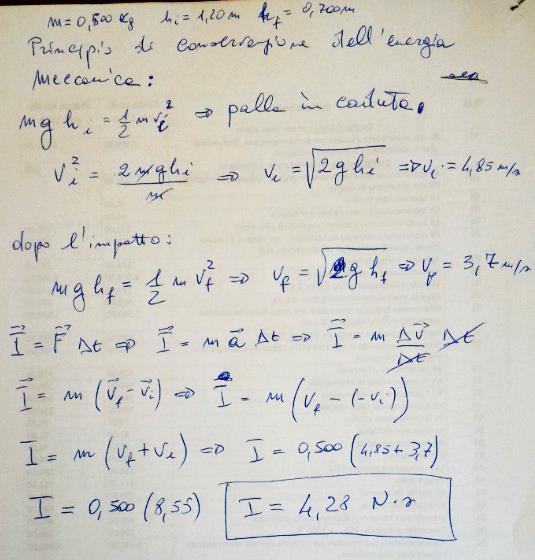 m = 0,500 kg   hi = 1,20 m   hf = 0,700 m
Principio di conservazione dell'energia
meccanica:
mg hi = 1/2 m vi² ⇒ palla in caduta.
vi² = 2mghi/m ⇒ vi = √(2ghi) ⇒ vi = 4,85 m/s
dopo l'impatto:
mghf = 1/2 m vf² ⇒ vf = √(2ghf) ⇒ vf = 3,7 m/s
I⃗ = F⃗ Δt ⇒ I⃗ = m a⃗ Δt ⇒ I⃗ = m Δv⃗/Δt Δt
I⃗ = m (v⃗f - v⃗i) ⇒ I = m (vf - (-vi))
I = m (vf + vi) ⇒ I = 0,500 (4,85 + 3,7)
I = 0,500 (8,55)   I = 4,28 N·s